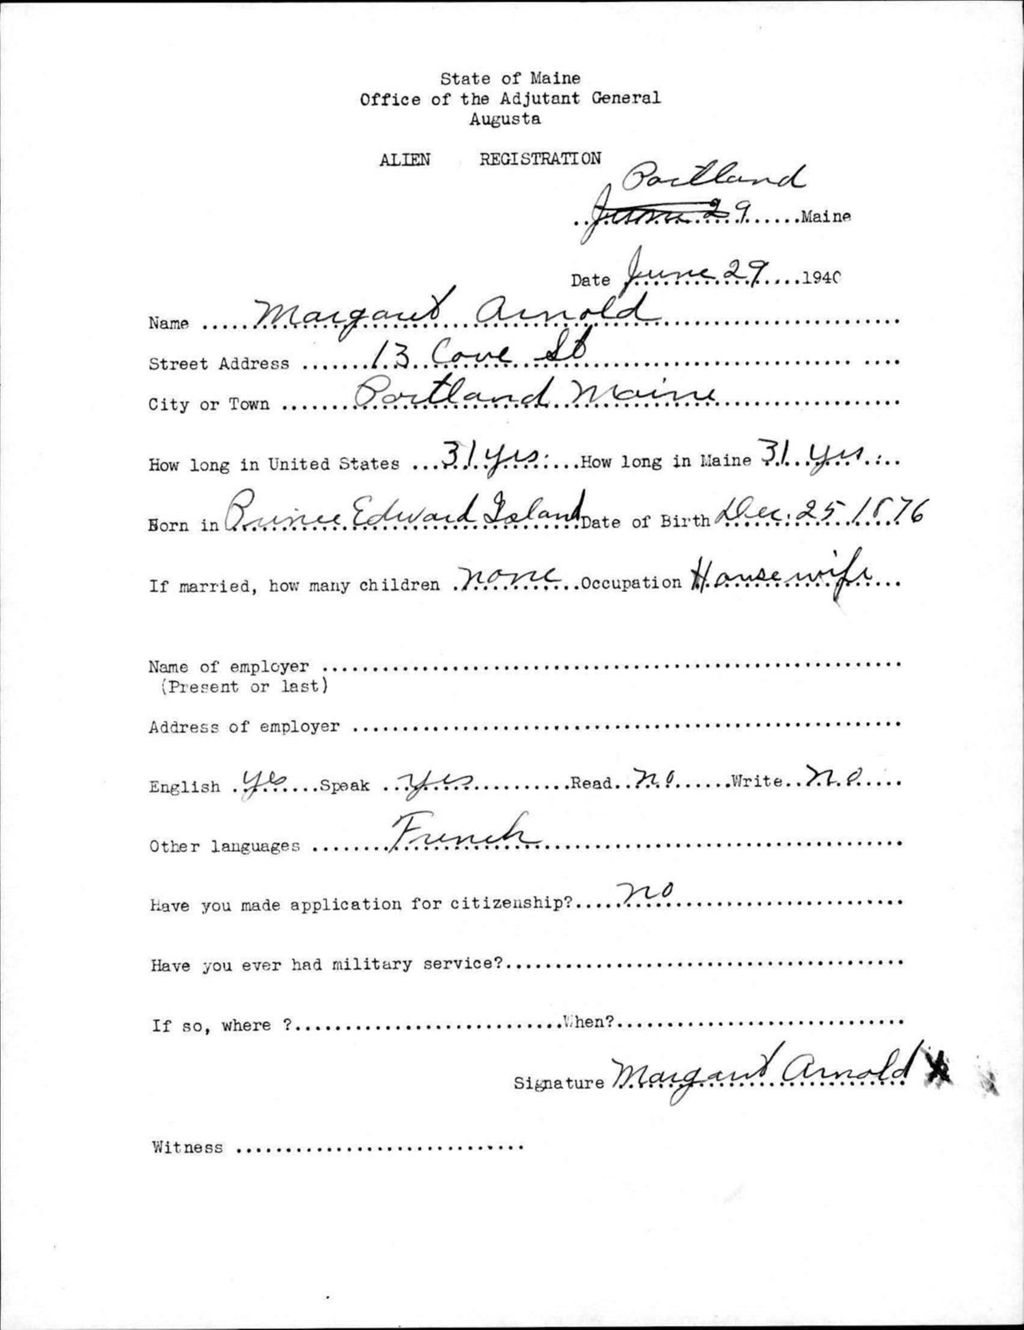 State of Maine
Office of the Adjutant General
Augusta
ALIEN REGISTRATION
Portland
June 29......Maine
Date June 29....1940
Name .....Margaret Arnold
Street Address .......13 Cove St
City or Town .......Portland Maine
How long in United States ...31 yrs....How long in Maine 31 yrs...
Born in Prince Edward Island Date of Birth Dec. 25, 1876
If married, how many children .none..Occupation Housewife...
Name of employer
(Present or last)
Address of employer
English .yes....Speak ..yes...........Read..no......Write..no....
Other languages ........French
Have you made application for citizenship?.....no
Have you ever had military service?
If so, where ?...........................When?
Signature Margaret Arnold X
Witness